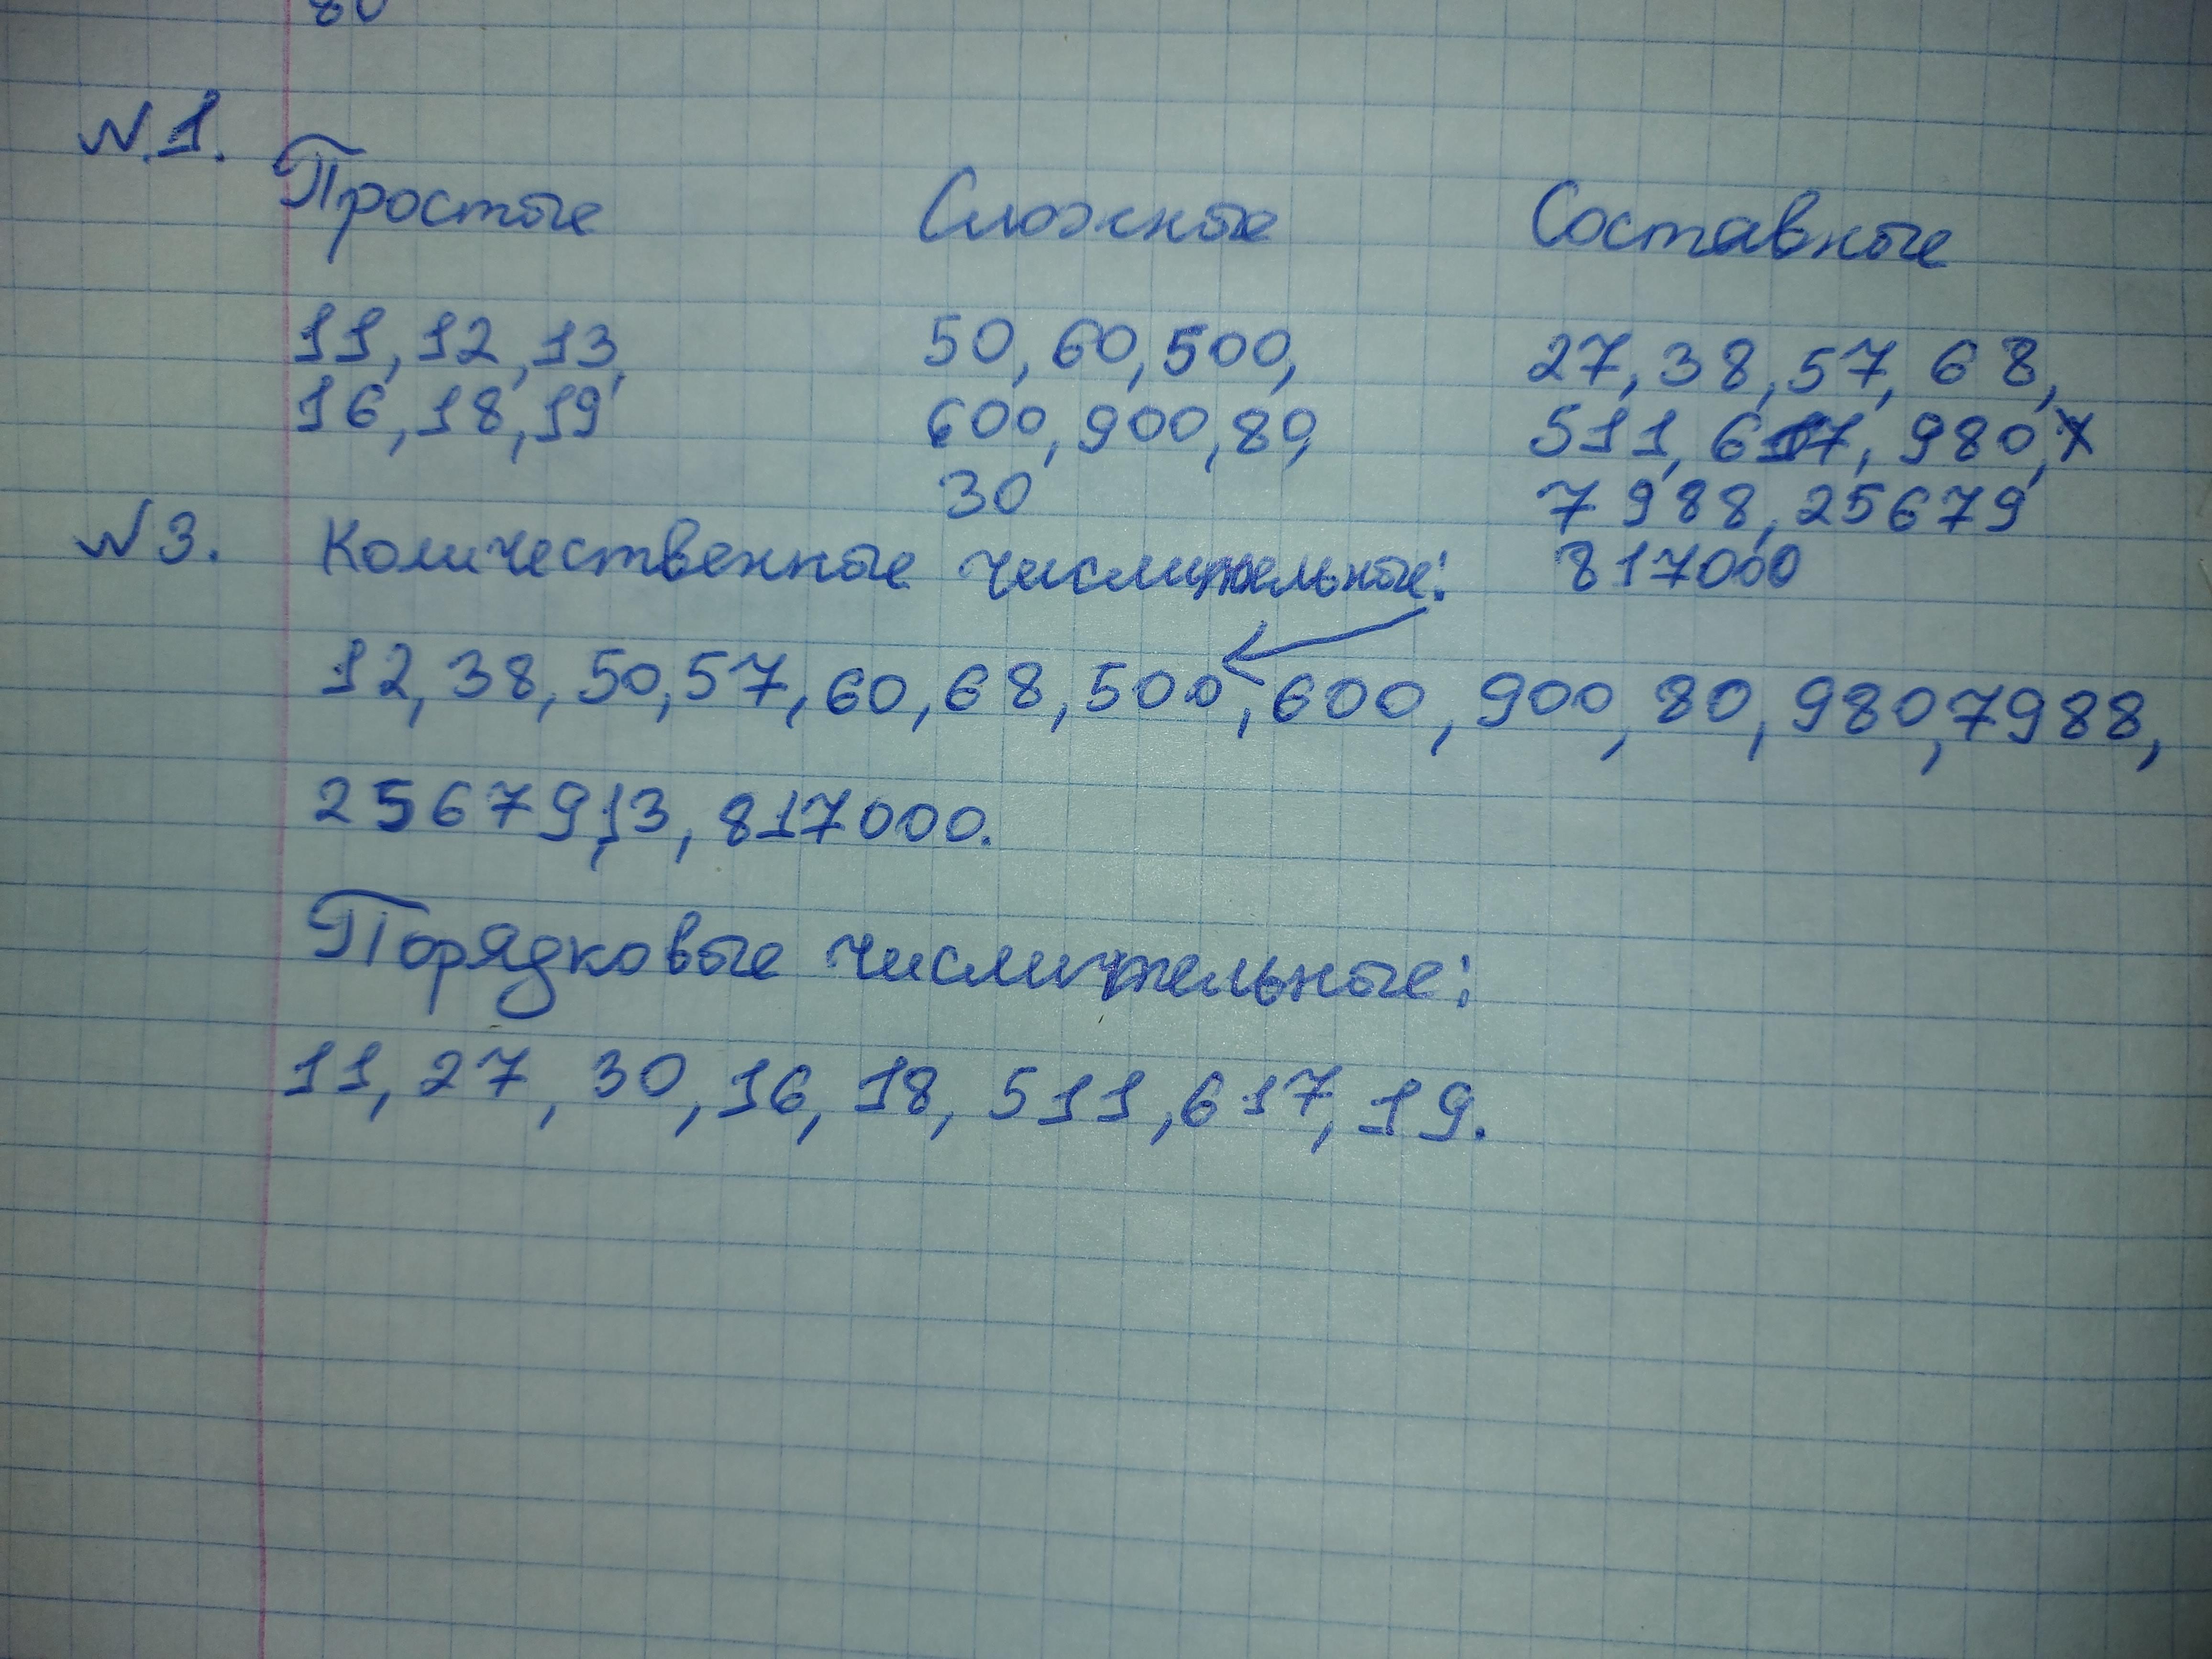 80
N.1.
Простые Сложные Составные
11, 12, 13, 50, 60, 500, 27, 38, 57, 68,
16, 18, 19 600, 900, 80, 511, 617, 980,
30 7988, 25679
N 3. Количественные числительные: 817000
12, 38, 50, 57, 60, 68, 500, 600, 900, 80, 980, 7988,
25679, 13, 817000.
Порядковые числительные:
11, 27, 30, 16, 18, 511, 617, 19.